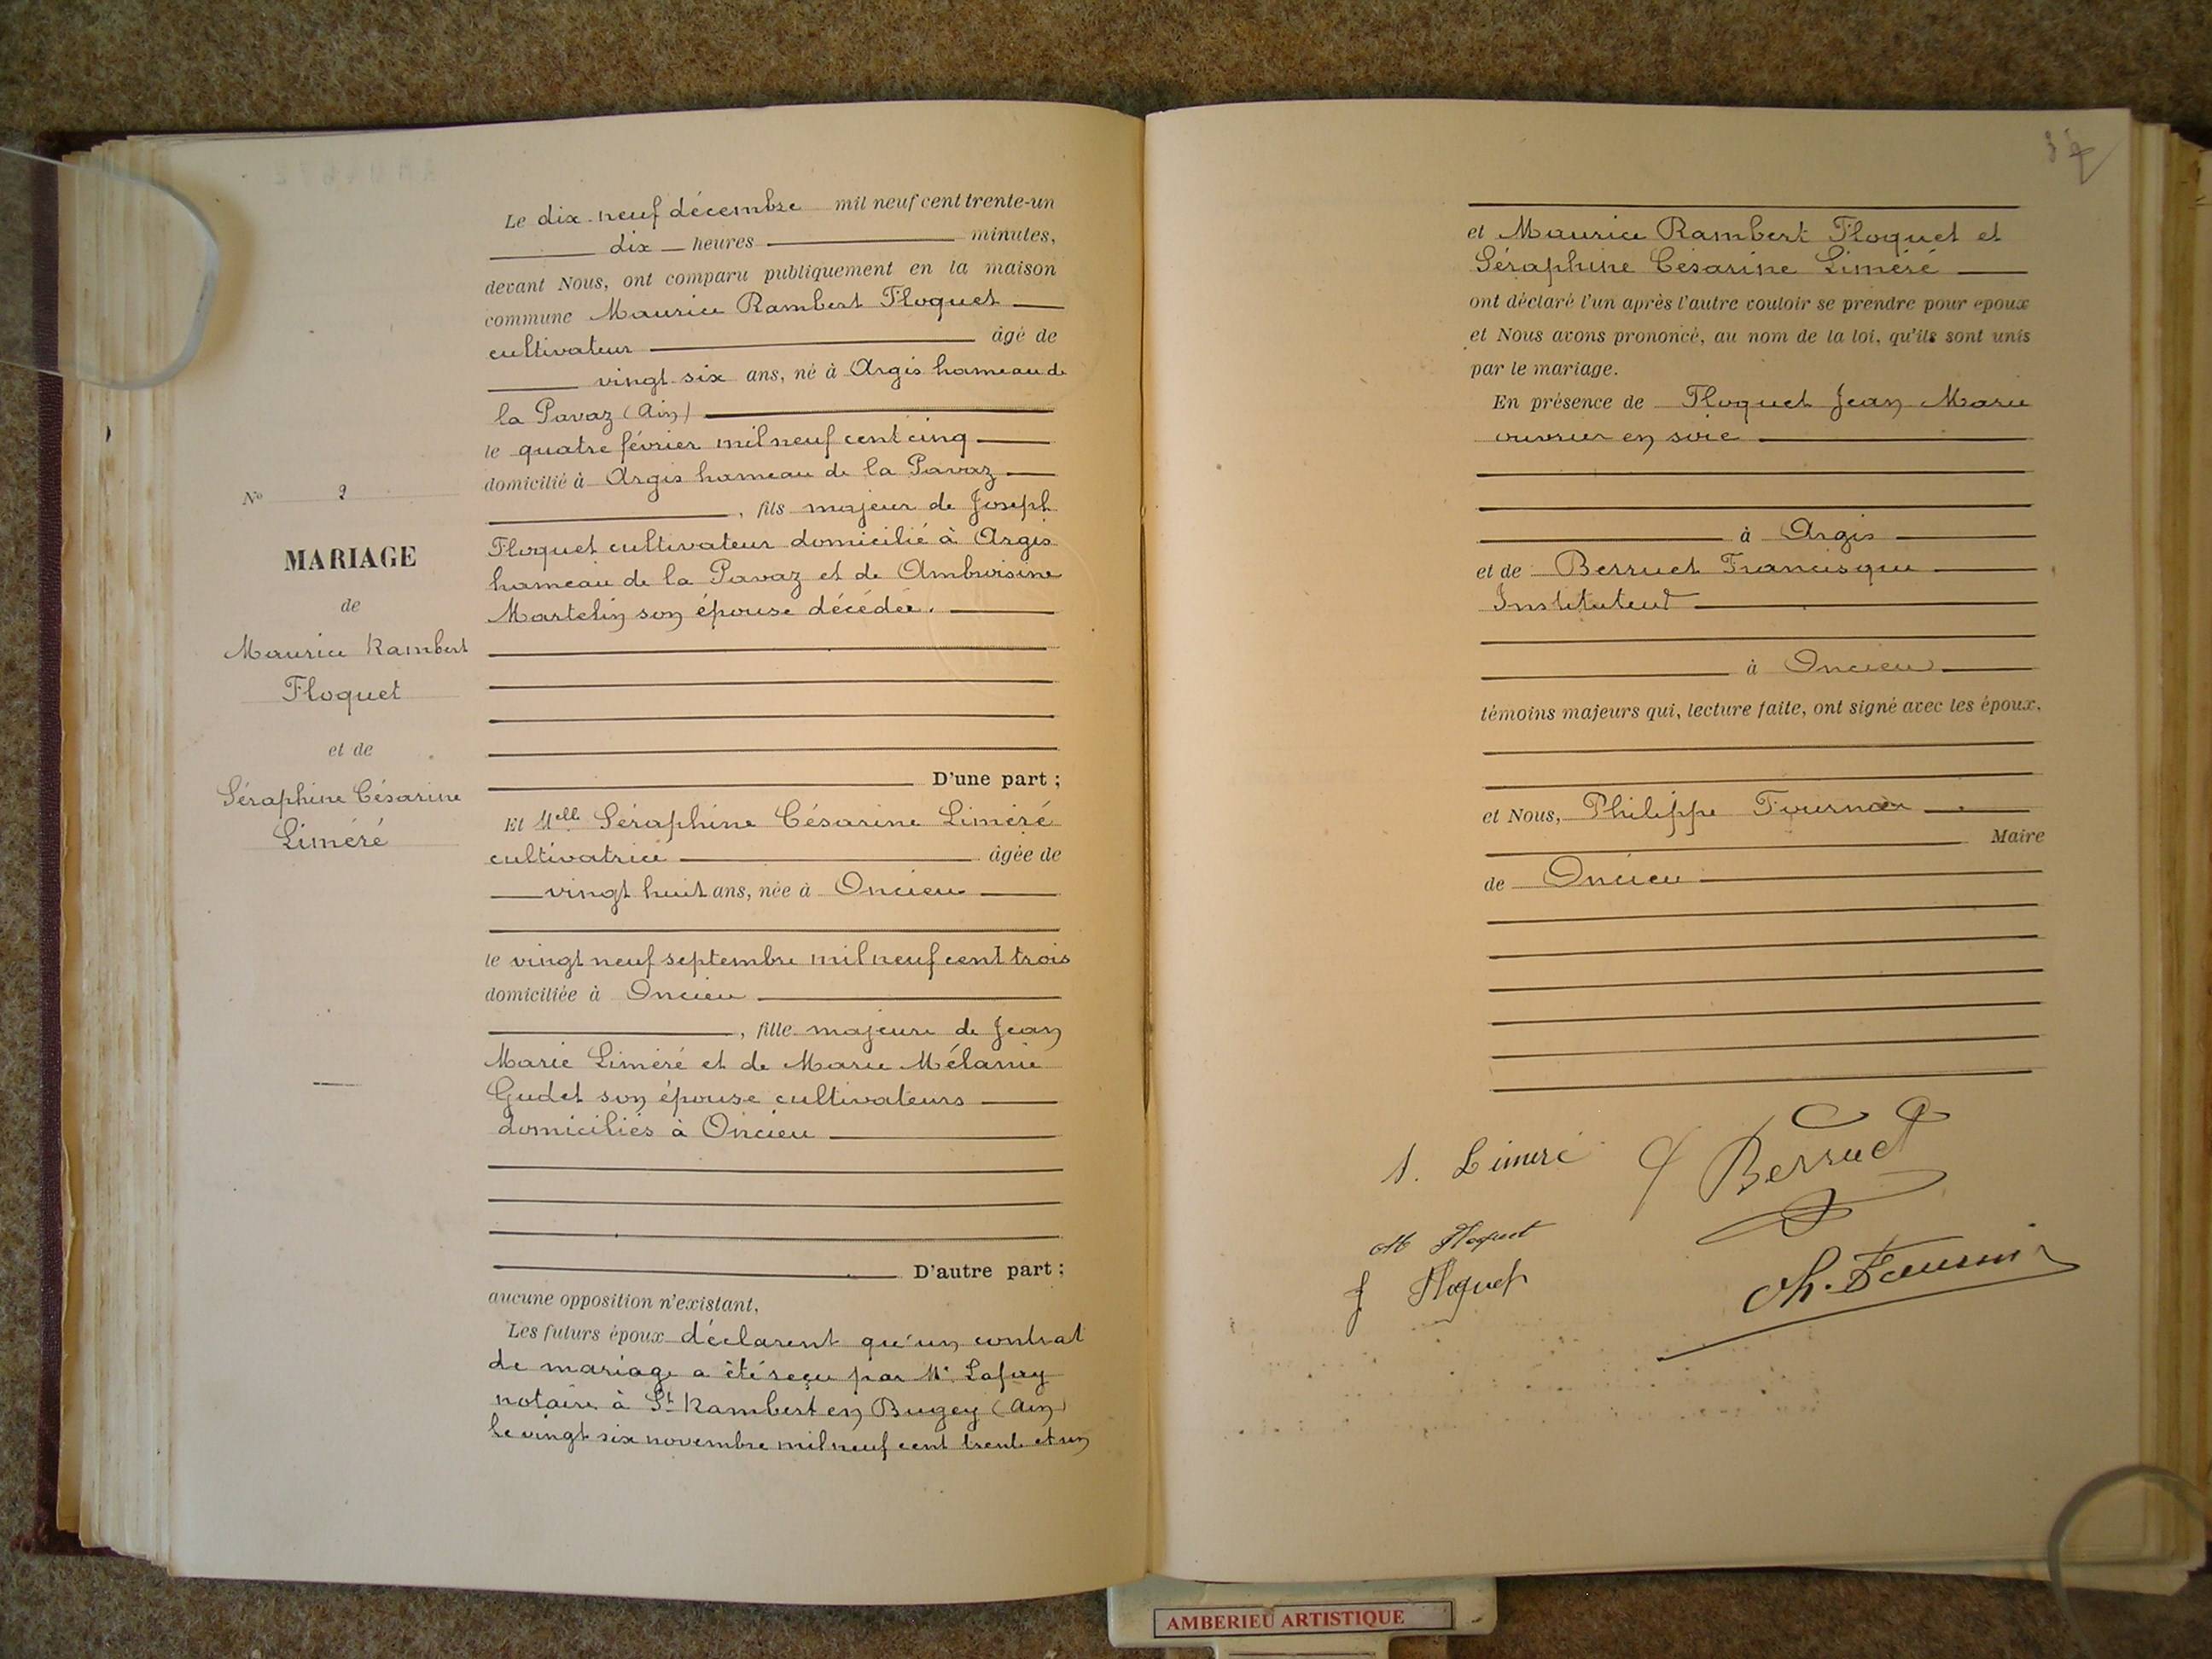 Le dix-neuf décembre mil neuf cent trente-un
dix heures minutes,
devant Nous, ont comparu publiquement en la maison
commune Maurice Rambert Floquet
cultivateur âgé de
vingt six ans, né à Argis hameau de
la Pavaz (Ain)
le quatre février mil neuf cent cinq
domicilié à Argis hameau de la Pavaz
, fils majeur de Joseph
Floquet cultivateur domicilié à Argis
hameau de la Pavaz et de Ambroisine
Martelin son épouse décédée.
D'une part ;
Et Melle Séraphine Césarine Liméré
cultivatrice âgée de
vingt huit ans, née à Oncieu
le vingt neuf septembre mil neuf cent trois
domiciliée à Oncieu
, fille majeure de Jean
Marie Liméré et de Marie Mélanie
Gudet son épouse cultivateurs
domiciliés à Oncieu
D'autre part ;
aucune opposition n'existant,
Les futurs époux déclarent qu'un contrat
de mariage a été reçu par Me Lafay
notaire à St Rambert en Bugey (Ain)
le vingt six novembre mil neuf cent trente et un
No 2
MARIAGE
de
Maurice Rambert
Floquet
et de
Séraphine Césarine
Liméré
et Maurice Rambert Floquet et
Séraphine Césarine Liméré
ont déclaré l'un après l'autre vouloir se prendre pour époux
et Nous avons prononcé, au nom de la loi, qu'ils sont unis
par le mariage.
En présence de Floquet Jean Marie
ouvrier en soie
à Argis
et de Berruet Francisque
Instituteur
à Oncieu
témoins majeurs qui, lecture faite, ont signé avec les époux.
et Nous, Philippe Fournier
Maire
de Oncieu
S. Liméré
Berruet
M Floquet
J Floquet
Ph. Fournier
AMBERIEU ARTISTIQUE